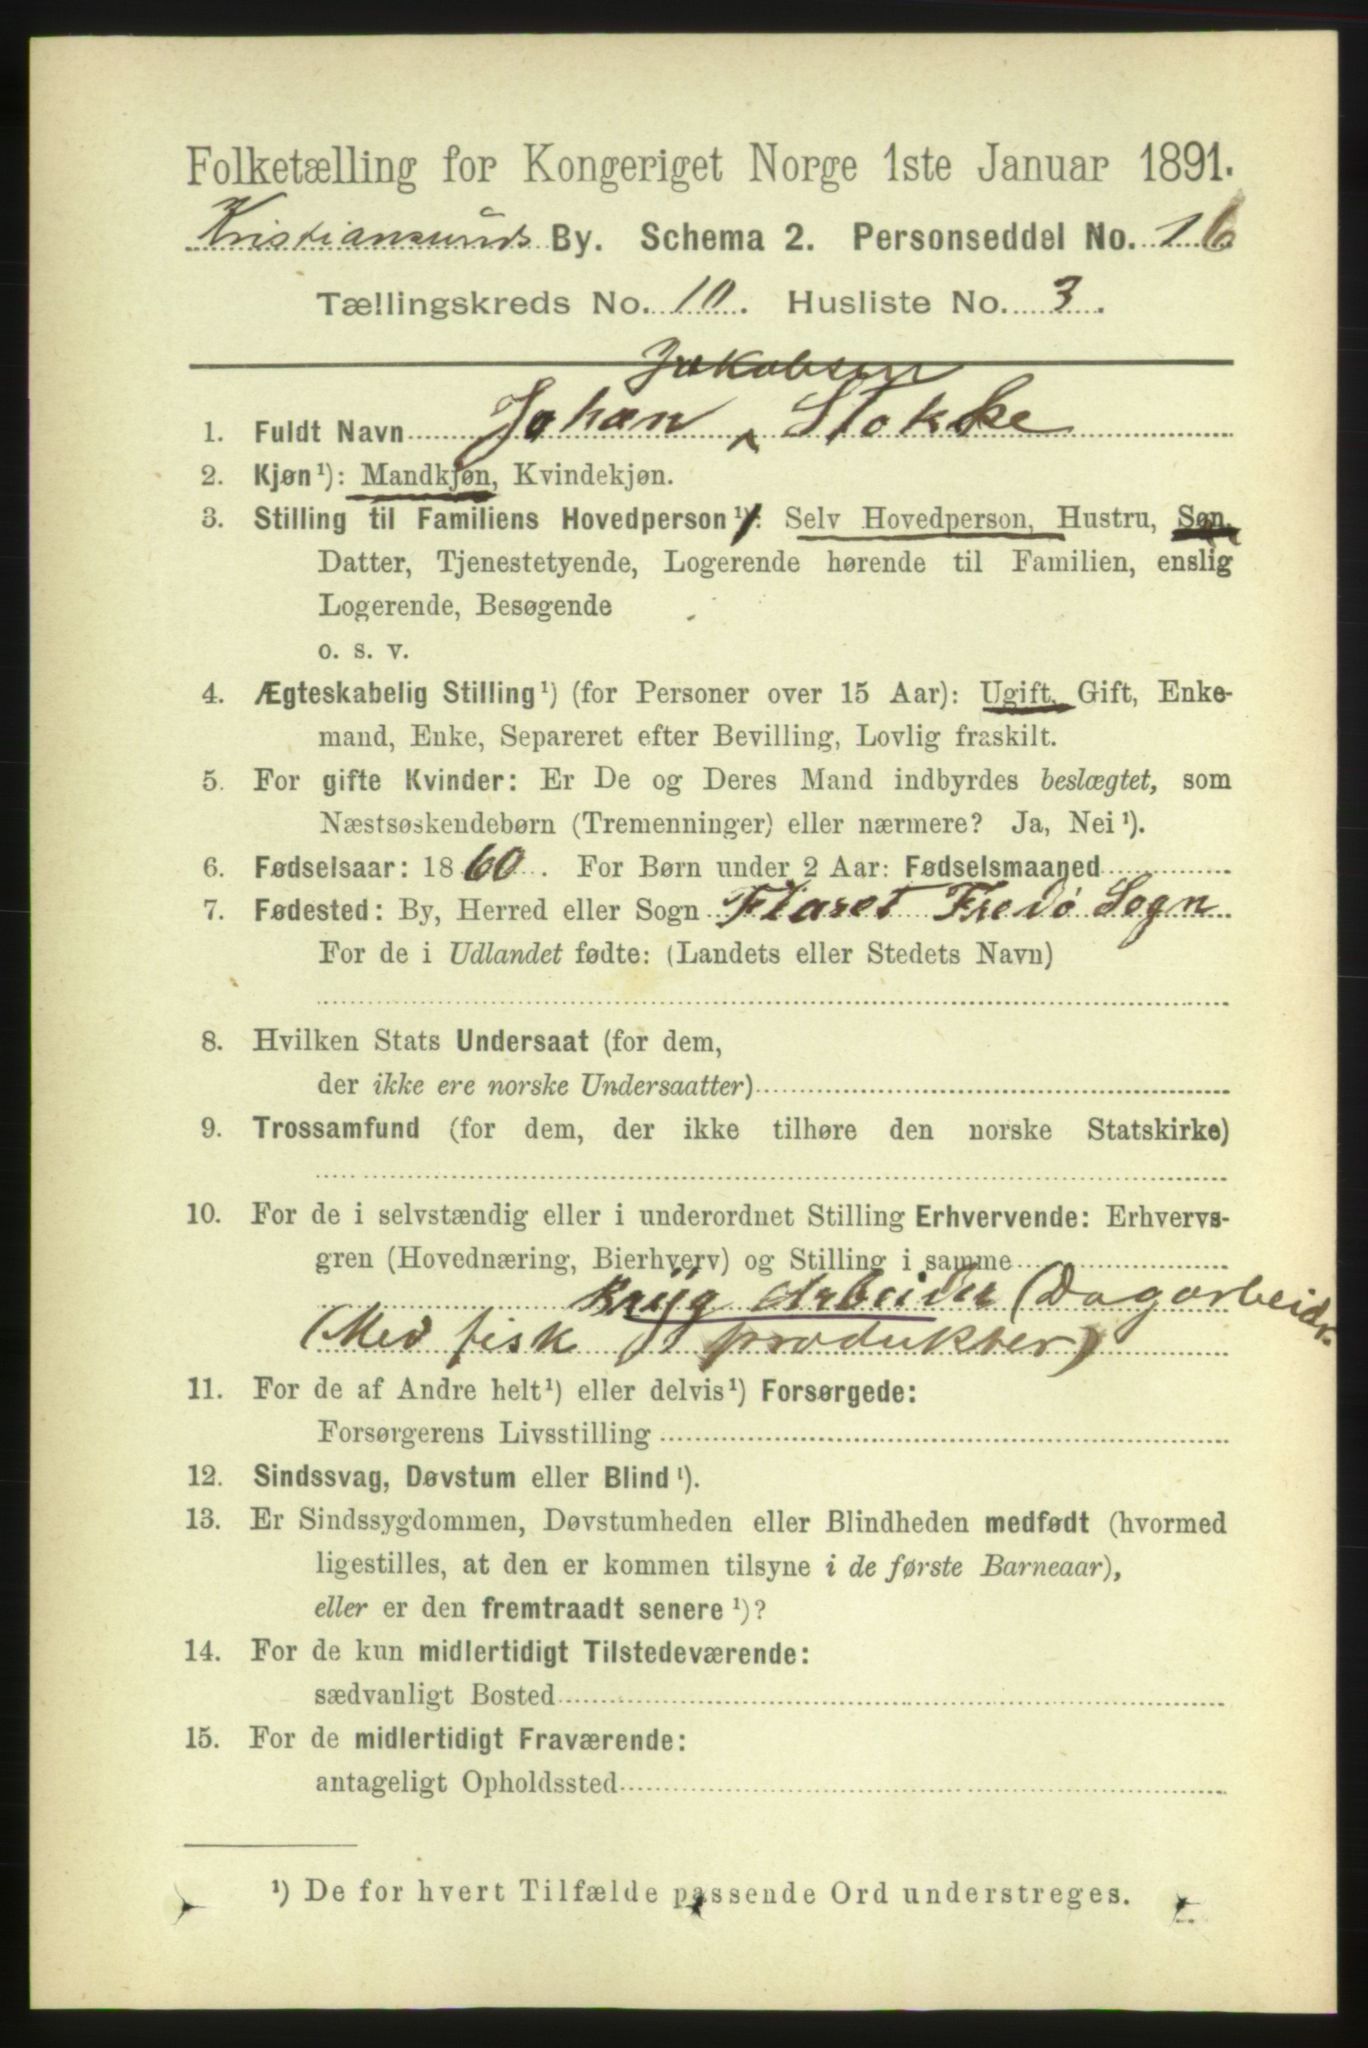 Folketælling for Kongeriget Norge 1ste Januar 1891.
Kristiansunds By. Schema 2. Personseddel No. 16
Tællingskreds No. 10. Husliste No. 3.
Jakobsen
1. Fuldt Navn Johan ^ Stokke
2. Kjøn¹): Mandkjøn, Kvindekjøn.
3. Stilling til Familiens Hovedperson¹): Selv Hovedperson, Hustru, Søn,
Datter, Tjenestetyende, Logerende hørende til Familien, enslig
Logerende, Besøgende
o. s. v.
4. Ægteskabelig Stilling¹) (for Personer over 15 Aar): Ugift, Gift, Enke-
mand, Enke, Separeret efter Bevilling, Lovlig fraskilt.
5. For gifte Kvinder: Er De og Deres Mand indbyrdes beslægtet, som
Næstsøskendebørn (Tremenninger) eller nærmere? Ja, Nei¹).
6. Fødselsaar: 1860. For Børn under 2 Aar: Fødselsmaaned
7. Fødested: By, Herred eller Sogn Flaset Fredø Sogn
For de i Udlandet fødte: (Landets eller Stedets Navn)
8. Hvilken Stats Undersaat (for dem,
der ikke ere norske Undersaatter)
9. Trossamfund (for dem, der ikke tilhøre den norske Statskirke)
10. For de i selvstændig eller i underordnet Stilling Erhvervende: Erhvervs-
gren (Hovednæring, Bierhverv) og Stilling i samme
Bryg Arbeider (Dagarbeidr.
(Med fisk produkter)
11. For de af Andre helt¹) eller delvis¹) Forsørgede:
Forsørgerens Livsstilling
12. Sindssvag, Døvstum eller Blind¹).
13. Er Sindssygdommen, Døvstumheden eller Blindheden medfødt (hvormed
ligestilles, at den er kommen tilsyne i de første Barneaar),
eller er den fremtraadt senere¹)?
14. For de kun midlertidigt Tilstedeværende:
sædvanligt Bosted
15. For de midlertidigt Fraværende:
antageligt Opholdssted
¹) De for hvert Tilfælde passende Ord understreges.